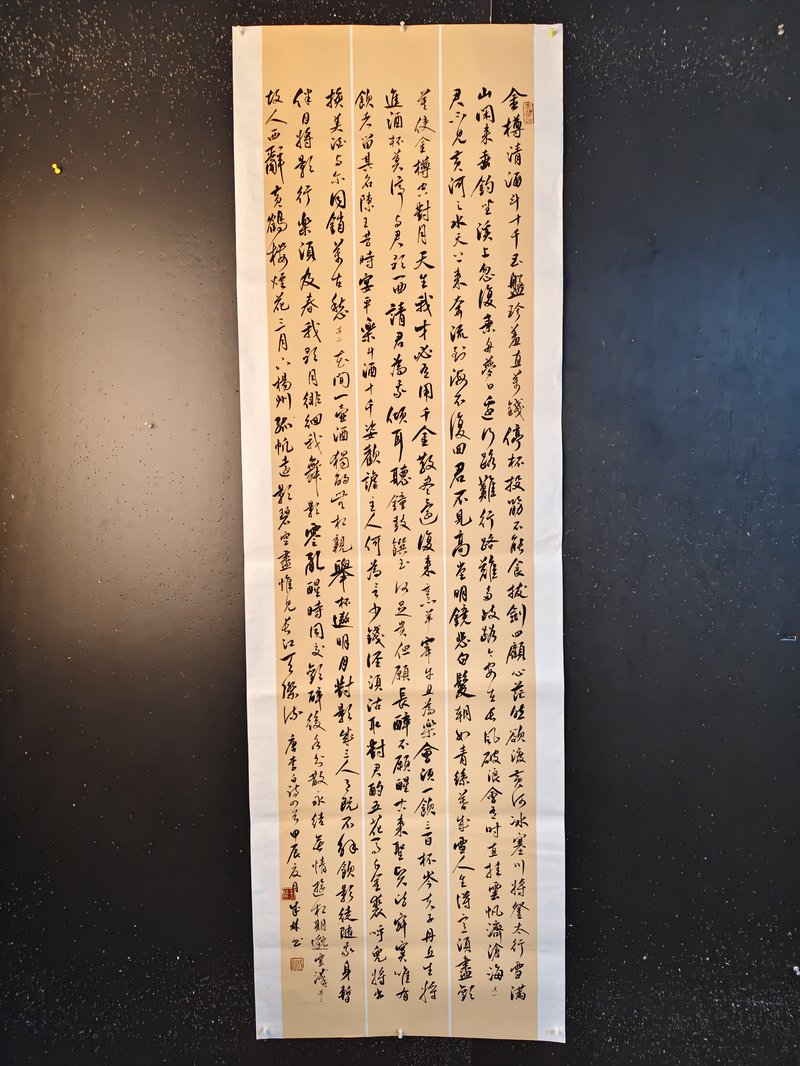 金樽清酒斗十千玉盤珍羞直萬錢停杯投筯不能食拔劍四顧心茫然欲渡黃河冰塞川將登太行雪滿
山閑來垂釣坐溪上忽復乘舟夢日邊行路難行路難多歧路今安在長風破浪會有時直挂雲帆濟滄海其一
君不見黃河之水天上來奔流到海不復回君不見高堂明鏡悲白髮朝如青絲暮成雪人生得意須盡歡
莫使金樽空對月天生我才必有用千金散盡還復來烹羊宰牛且為樂會須一飲三百杯岑夫子丹丘生將
進酒杯莫停与君歌一曲請君為我傾耳聽鐘鼓饌玉何足貴但願長醉不願醒古來聖賢皆寂寞唯有
飲者留其名陳王昔時宴平樂斗酒十千恣歡謔主人何為言少錢徑須沽取對君酌五花馬千金裘呼兒將出
換美酒与尔同銷萬古愁其二花間一壺酒獨酌無相親舉杯邀明月對影成三人月既不解飲影徒隨我身暫
伴月將影行樂須及春我歌月徘徊我舞影零亂醒時同交歡醉後各分散永結無情遊相期邈雲漢其三
故人西辭黃鶴樓煙花三月下揚州孤帆遠影碧空盡惟見長江天際流唐李白詩四首甲辰夏月林書